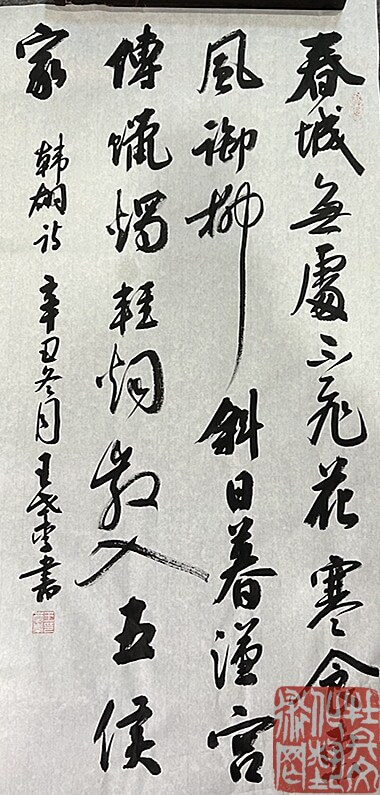 春城無處不飛花寒食東
風御柳斜日暮漢宮
傳蠟燭輕烟散入五侯
家
韩翃诗 辛丑冬月 王書